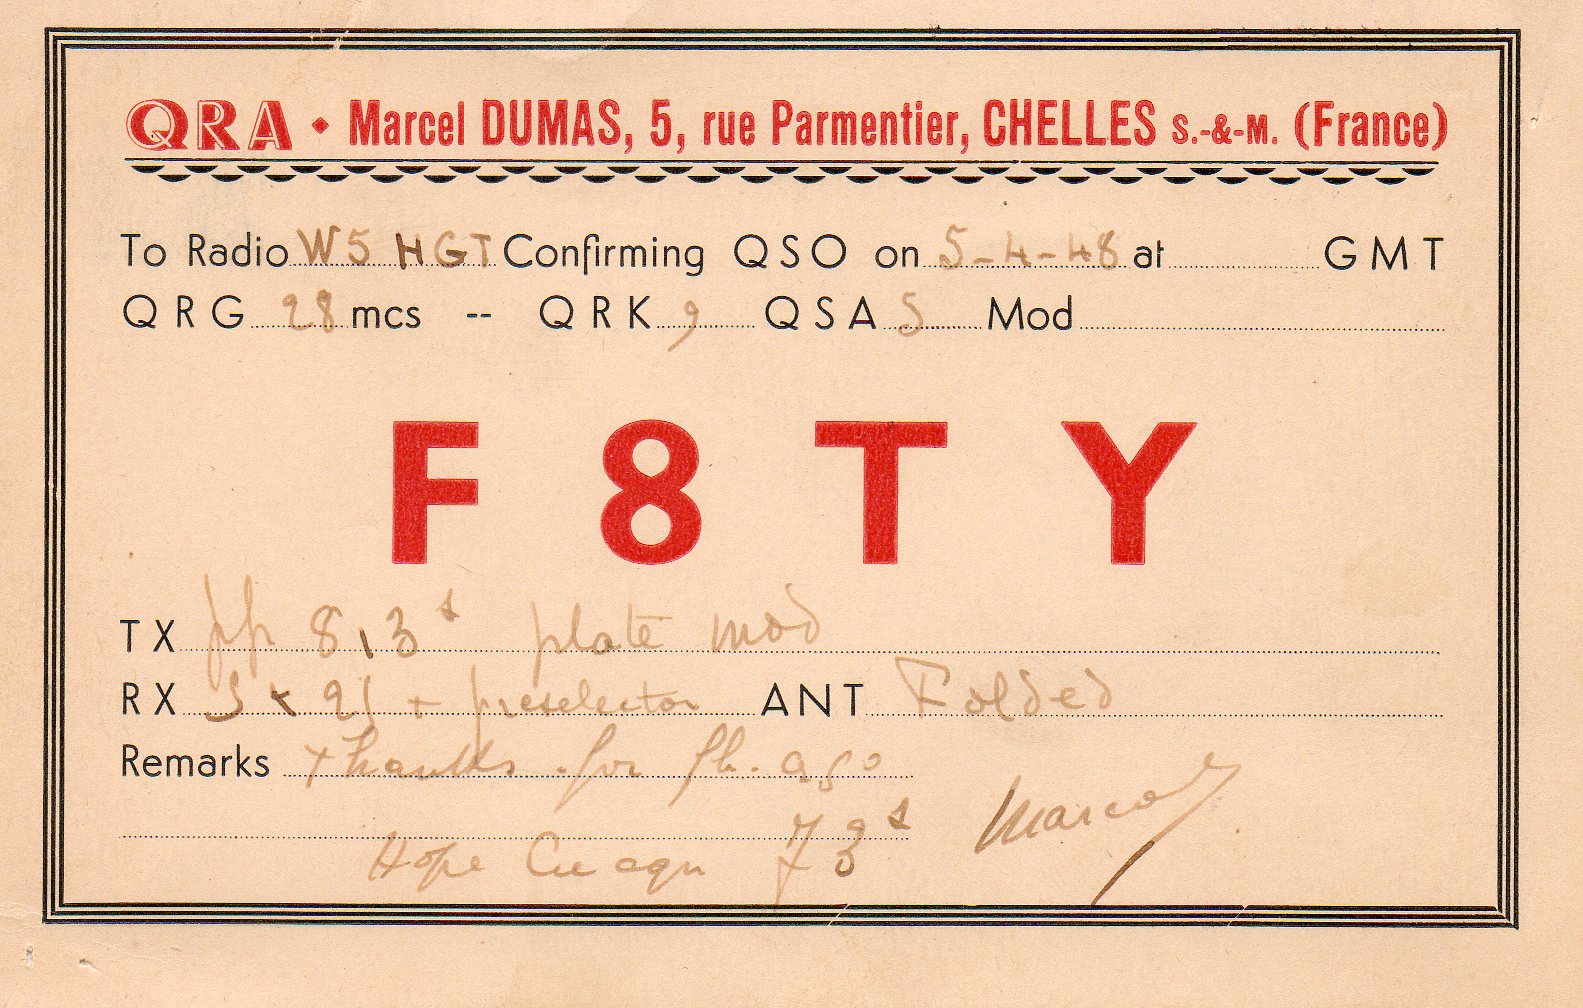 QRA • Marcel DUMAS, 5, rue Parmentier, CHELLES S.-&-M. (France)
To Radio W5HGT Confirming QSO on 5-4-48 at GMT
QRG 28 mcs -- QRK 9 QSA 5 Mod
F8TY
TX pp 813s plate mod
RX + preselector ANT Folded
Remarks thanks for fb. qso
Hope Cu agn 73s Marcel